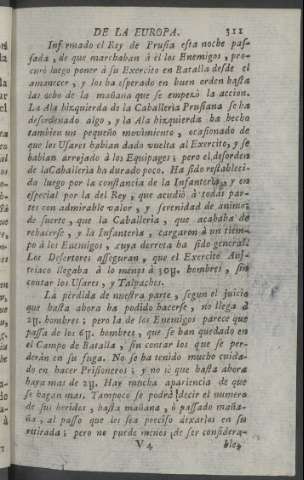 DE LA EUROPA. 311
Informado el Rey de Prusia esta noche pas-
sada, de que marchaban à èl los Enemigos, pro-
curò luego poner à su Exercito en Batalla desde el
amanecer, y los ha esperado en buen orden hasta
las ocho de la mañana que se empezò la accion.
La Ala hizquierda de la Caballerìa Prusiana se ha
desordenado algo, y la Ala hizquierda ha hecho
tambien un pequeño movimiento, ocasionado de
que los Usares habian dado vuelta al Exercito, y se
habian arrojado à los Equipages; pero el desorden
de la Caballerìa ha durado poco. Ha sido restableci-
da luego por la constancia de la Infanterìa, y en
especial por la del Rey, que acudiò à todas par-
tes con admirable valor, y serenidad de animo:
de suerte, que la Caballerìa, que acababa de
rehacerse, y la Infanterìa, cargaron à un tiem-
po à los Enemigos, cuya derrota ha sido general.
Los Desertores asseguran, que el Exercito Aus-
triaco llegaba à lo menos à 30y. hombres, sin
contar los Usares, y Talpaches.
La pèrdida de nuestra parte, segun el juicio
que hasta ahora ha podido hacerse, no llega à
2y. hombres; pero la de los Enemigos parece que
passa de los 6y. hombres, que se han quedado en
el Campo de Batalla, sin contar los que se per-
deràn en su fuga. No se ha tenido mucho cuida-
do en hacer Prisioneros; y no sè que hasta ahora
haya mas de 2y. Hay mucha apariencia de que
se hagan mas. Tampoco se podrà decir el numero
de sus heridos, hasta mañana, ò passado maña-
na, al passo que les sea preciso dexarlos en su
retirada; pero no puede menos de ser considera-
V 4 ble;